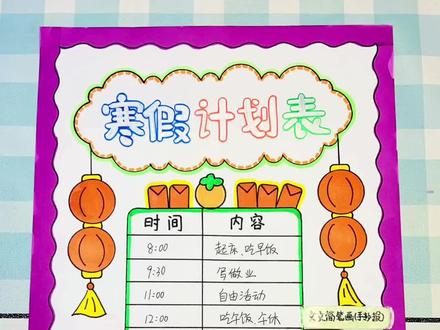 寒假计划表
时间 内容
8:00 起床、吃早饭
9:30 写做业
11:00 自由活动
12:00 吃午饭 午休
简笔画(手抄报)